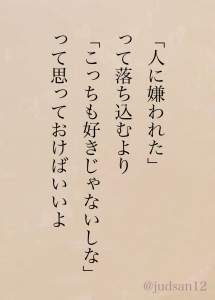 「人に嫌われた」
って落ち込むより
「こっちも好きじゃないしな」
って思っておけばいいよ
@judsan12